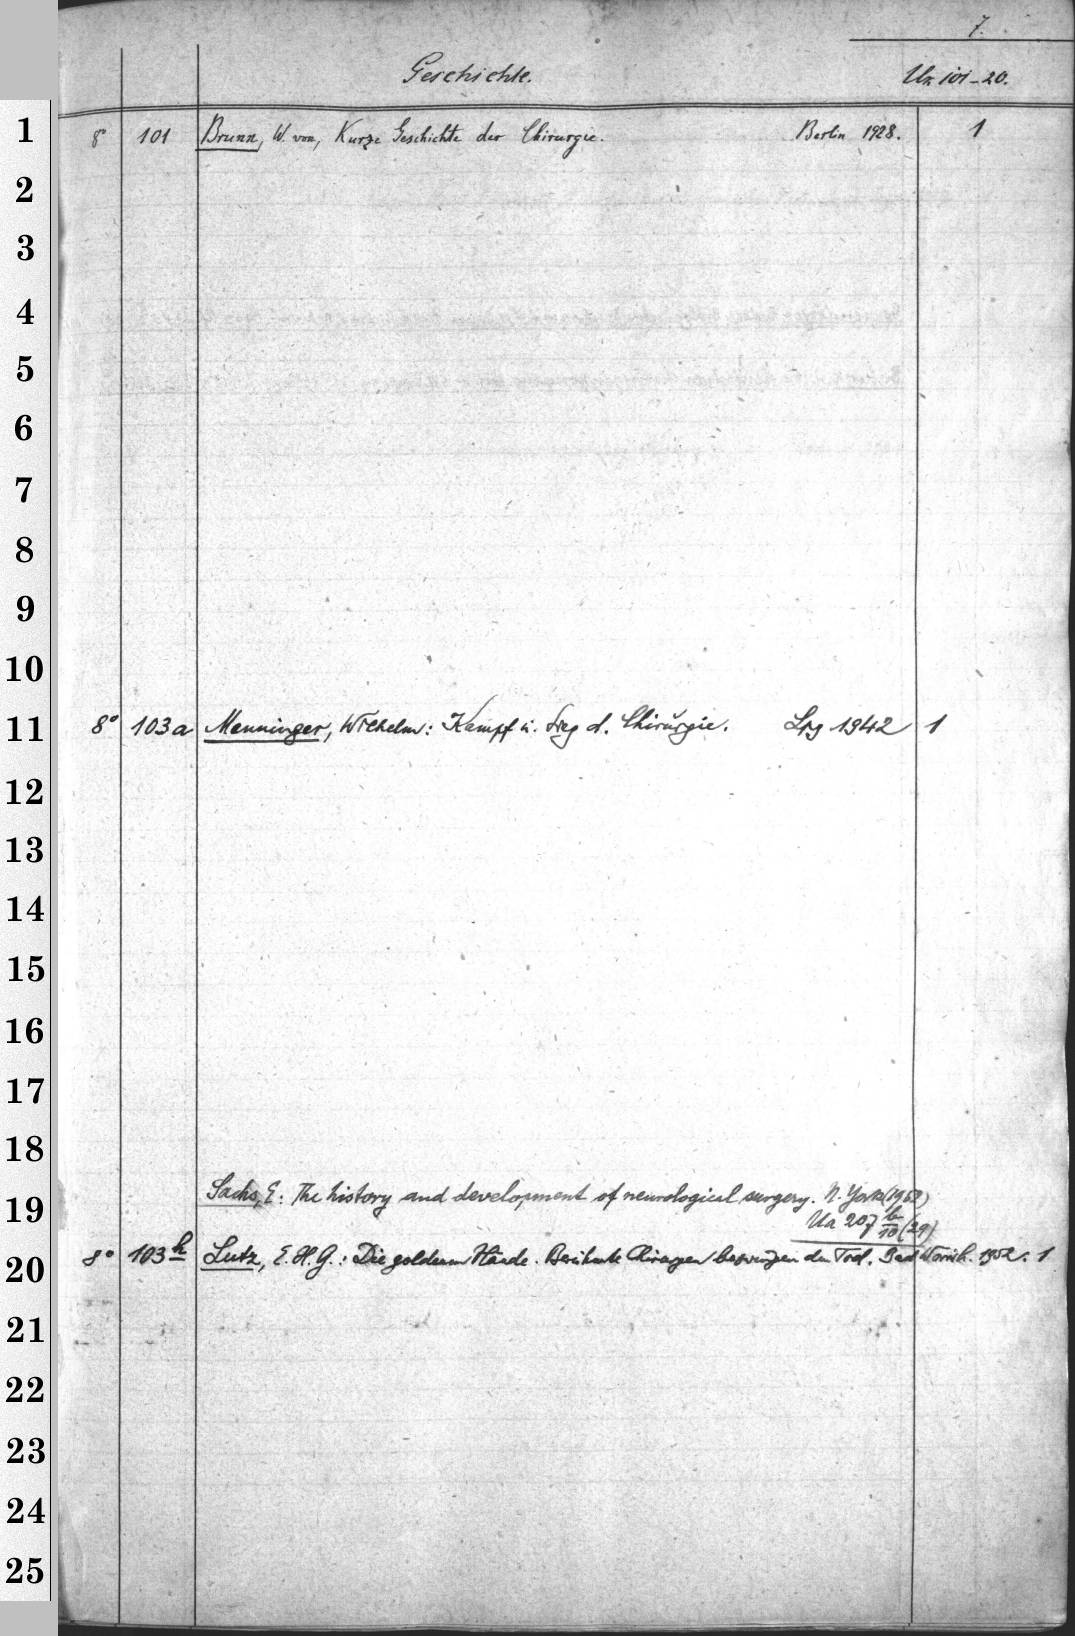 7.
Geschichte. Uz 101-20.
1 8° 101 Brunn, W. von, Kurze Geschichte der Chirurgie. Berlin 1928. 1
2
3
4
5
6
7
8
9
10
11 8° 103a Menninger, Wilhelm: Kampf u. Sieg d. Chirurgie. Lpg 1942 1
12
13
14
15
16
17
18
Sachs, E: The history and development of neurological surgery. N. York (1952)
19 Ua 207 b/10 (29)
20 8° 103h Lutz, E. H. G.: Die goldenen Hände. Berühmte Chirurgen bezwingen den Tod. Bad Wörish. 1952. 1
21
22
23
24
25